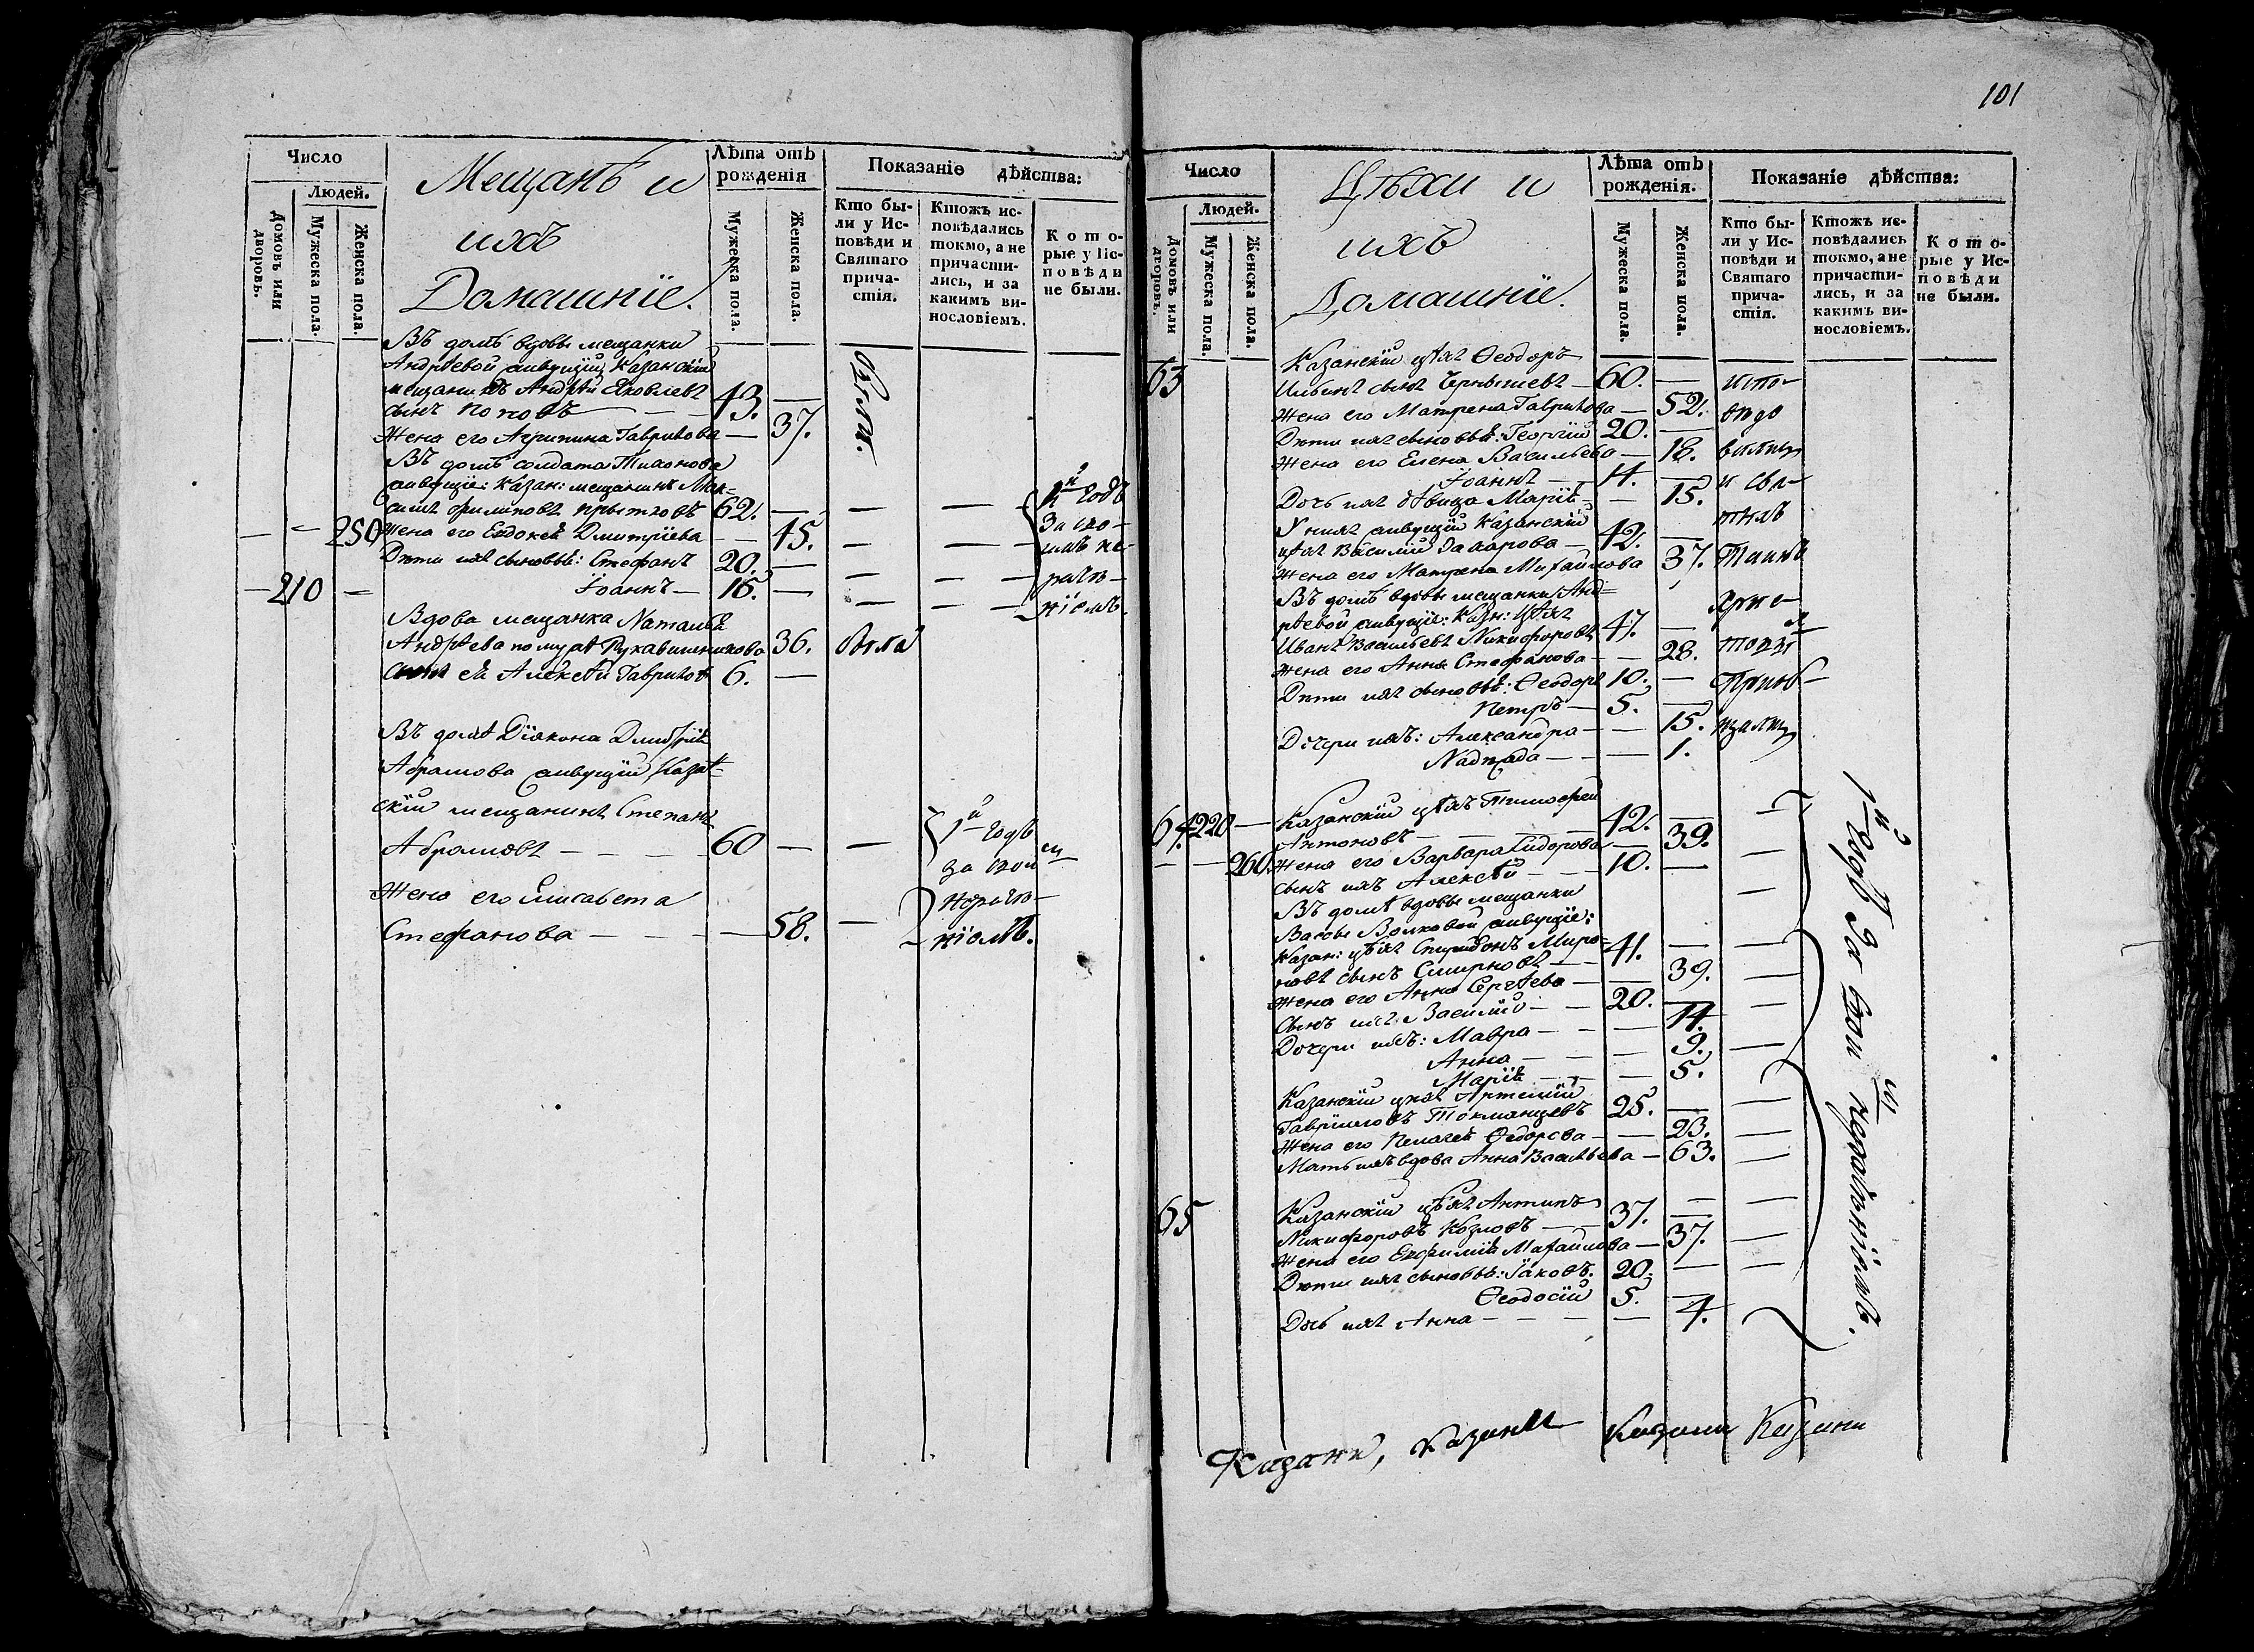 101
Число
Мещанъ и
ихъ
Домашніе.
Лѣта отъ
рожденія
Показаніе дѣйства:
Людей.
Домовъ или
дворовъ.
Мужеска пола.
Женска пола.
Мужеска пола.
Женска пола.
Кто бы-
ли у Ис-
повѣди и
Святаго
прича-
стія.
Ктожъ ис-
повѣдались
токмо, а не
причасти-
лись, и за
какимъ ви-
нословіемъ.
Кото-
рые у Ис-
повѣди
не были.
Въ домѣ вдовы мещанки
Андрѣевой живущій Казанскій
мещанинъ Андрѣй Яковлевъ
сынъ Поповъ — — 43. —
Жена его Агрипина Гаврилова — 37.
были.
Въ домѣ солдата Тихонова
живущіе: Казан: мещанинъ Мак-
симъ Филиповъ 62. — — — 1й годъ
— — 250 Жена его Евдокея Дмитріева — — 45. — — за сво-
Дѣти ихъ сыновья: Стефанъ 20. — — — имъ не-
— 210 — Іоаннъ — 16. — — — раче-
ніемъ.
Вдова мещанка Наталья
Андрѣева по мужѣ Рукавишникова 36. была
Сынъ ея Алексѣй Гаврилов 6. —
Въ домѣ Діакона Дмитрія
Абрамова живущій Казан-
скій мещанинъ Степанъ
Абрамовъ — — — — 60 — — 1й годъ
за свои
Жена его Елисавета
Стефанова — — — — 58. — нераче-
ніемъ.
Число
Цѣхи и
ихъ
Домашніе.
Лѣта отъ
рожденія.
Показаніе дѣйства:
Людей.
Домовъ или
дворовъ.
Мужеска пола.
Женска пола.
Мужеска пола.
Женска пола.
Кто бы-
ли у Ис-
повѣди и
Святаго
прича-
стія.
Ктожъ ис-
повѣдались
токмо, а не
причасти-
лись, и за
какимъ ви-
нословіемъ.
Кото-
рые у Ис-
повѣди
не были.
63 Казанскій цѣхъ Ѳеодоръ
сынъ Чернышевъ — 60. — испо-
Жена его Матрена Гаврилова — 52. вѣдо
Дѣти ихъ сыновья: Георгій 20. —
Жена его Елена Васильева — 18.
Іоаннъ — 14. — и свя-
Дочь ихъ дѣвица Марія — — 15. тыхъ
У нихъ живущій Казанскій
цѣхъ Василій Захарова — 42. —
Жена его Матрена Михайлова 37. Таинъ
Въ домѣ вдовы мещанки Анд-
рѣевой живущіе: Казан: цѣхъ
Иванъ Васильевъ Никифоровъ 47. —
Жена его Анна Стефанова — — 28.
Дѣти ихъ сыновья: Ѳеодоръ 10. —
Петръ — 5. —
Дочери ихъ: Александра — — 15.
Надежда — — — 1.
64. 220 — Казанскій цѣхъ Тимофей
Антоновъ — — — 42. — —
— — 260. Жена его Варвара Сидорова — 39. —
Сынъ ихъ Алексѣй — — — 10. — —
Въ домѣ вдовы мещанки
Волковой живущіе:
Казан: цѣхъ Спиридонъ Миро-
новъ сынъ Смирновъ — — 41. — —
Жена его Анна Сергѣева — — 39. —
Сынъ ихъ Василій — — 20. — —
Дочери ихъ: Мавра — — — 14. —
Анна — — — 9.
Марія — — — 5.
Казанскій цѣхъ Артемій
Гавриловъ Токманцевъ 25. — —
Жена его Пелагея Ѳедорова — — 23. —
Мать ихъ вдова Анна Васильева — 63. —
65 Казанскій цѣхъ Антипъ
Никифоровъ Козловъ — — 37. — —
Жена его Евфимія Михайлова — 37. —
Дѣти ихъ сыновья: Іаковъ. 20. — —
Ѳеодосій 5. —
Дочь ихъ Анна — — — — 4.
1й годъ За свои нераченіемъ.
Казани, Казани Казани Казани